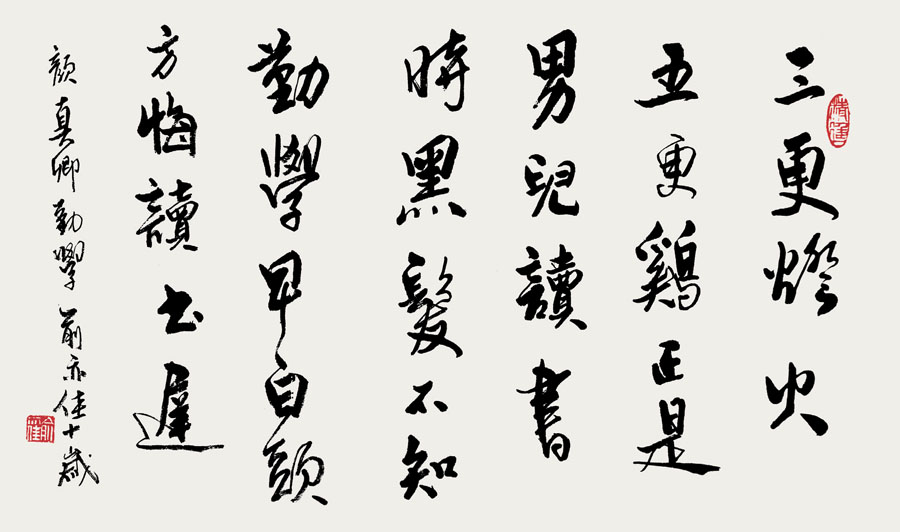 三更燈火
五更鷄正是
男兒讀書
時黑髮不知
勤學早白頭
方悔讀书遲
顏真卿勤學俞亦佳十歲